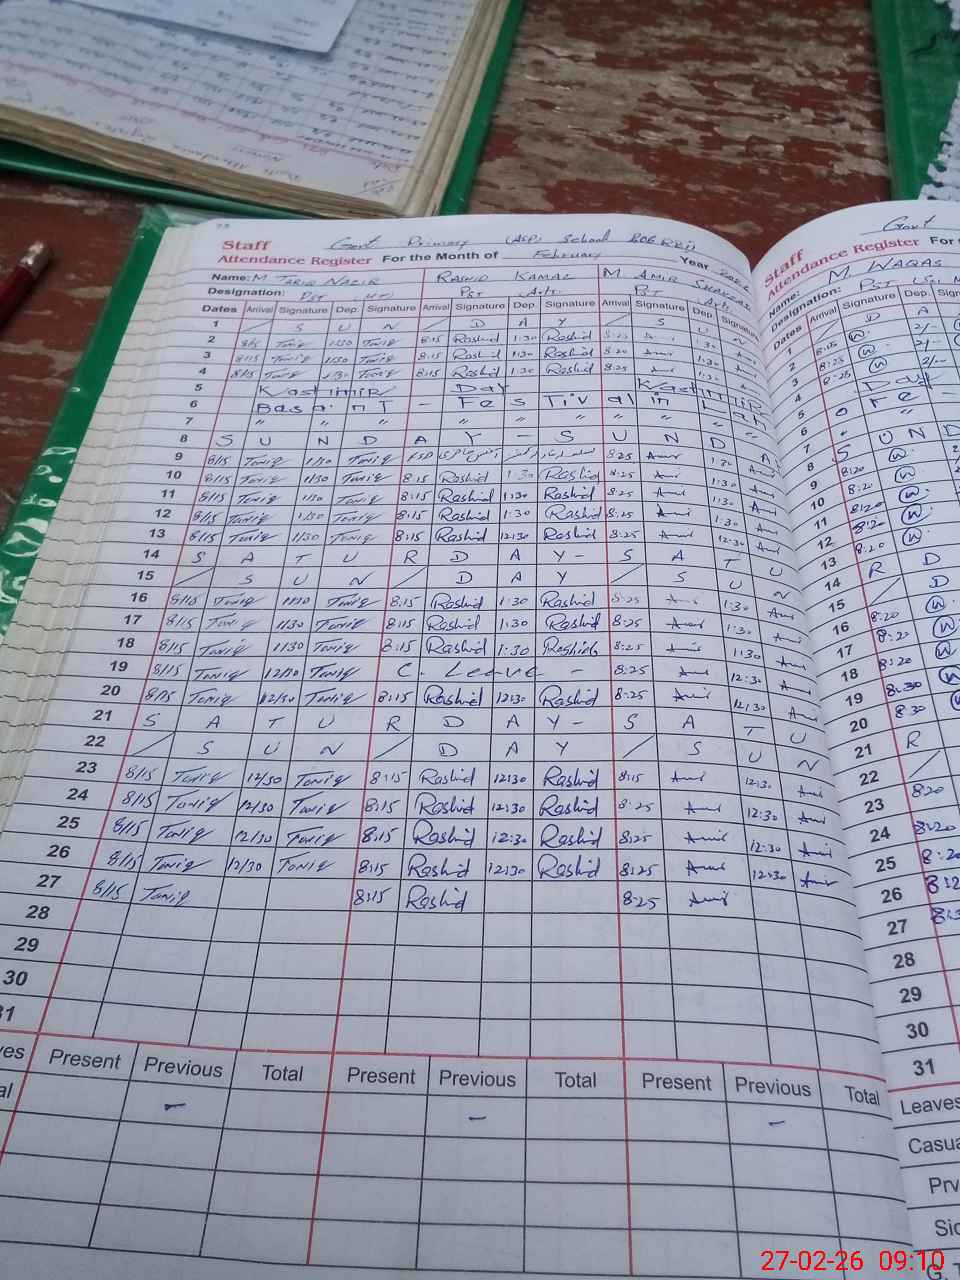 Staff Govt Primary (ASP) School
Attendance Register For the Month of February Year
Name: M TARIQ NAZIR RASHID KAMAL M AMIR SHAHZAD
Designation: PST (HT) PST PST
Dates Arrival Signature Dep Signature Arrival Signature Dep Signature Arrival Signature Dep Signature
1 S U N D A Y S U N
2 8/15 Tariq 1/30 Tariq 8:15 Rashid 1:30 Rashid 8:25 Amir 1:30
3 8/15 Tariq 1/30 Tariq 8:15 Rashid 1:30 Rashid 8:20 Amir 1:30 Amir
4 8/15 Tariq 1/30 Tariq 8:15 Rashid 1:30 Rashid 8:25 Amir 1:30 Amir
5 Kashmir Day Kashmir
6 Basant - Festival in Lah
7 " " " " " "
8 S U N D A Y - S U N D A
9 8/15 Tariq 1/30 Tariq 8:25 Amir 1:30 Amir
10 8/15 Tariq 1/30 Tariq 8:15 Rashid 1:30 Rashid 8:25 Amir 1:30 Amir
11 8/15 Tariq 1/30 Tariq 8:15 Rashid 1:30 Rashid 8:25 Amir 1:30 Amir
12 8/15 Tariq 1/30 Tariq 8:15 Rashid 1:30 Rashid 8:25 Amir 1:30 Amir
13 8/15 Tariq 1/30 Tariq 8:15 Rashid 12:30 Rashid 8:25 Amir 12:30 Amir
14 S A T U R D A Y - S A T U
15 S U N D A Y S U N
16 8/15 Tariq 1/30 Tariq 8:15 Rashid 1:30 Rashid 8:25 Amir 1:30 Amir
17 8/15 Tariq 1/30 Tariq 8:15 Rashid 1:30 Rashid 8:25 Amir 1:30 Amir
18 8/15 Tariq 1/30 Tariq 8:15 Rashid 1:30 Rashid 8:25 Amir 1:30 Amir
19 8/15 Tariq 12/30 Tariq C. Leave - 8:25 Amir 12:30 Amir
20 8/15 Tariq 12/30 Tariq 8:15 Rashid 12:30 Rashid 8:25 Amir 12:30 Amir
21 S A T U R D A Y - S A T U
22 S U N D A Y S U N
23 8/15 Tariq 12/30 Tariq 8:15 Rashid 12:30 Rashid 8:15 Amir 12:30 Amir
24 8/15 Tariq 12/30 Tariq 8:15 Rashid 12:30 Rashid 8:25 Amir 12:30 Amir
25 8/15 Tariq 12/30 Tariq 8:15 Rashid 12:30 Rashid 8:25 Amir 12:30 Amir
26 8/15 Tariq 12/30 Tariq 8:15 Rashid 12:30 Rashid 8:25 Amir 12:30 Amir
27 8/15 Tariq 8:15 Rashid 8:25 Amir
28
29
30
31
Present Previous Total Present Previous Total Present Previous Total
- - -
Staff Govt
Attendance Register For
Name: M WAQAS
Designation: PST
Dates Arrival Signature Dep Signature
1 D A
2 8:25 W 2/-
3 8:25 W 2/-
4 8:25 W 2/-
5 Day
6
7 " "
8 S U N D
9 8:20 W
10 8:20 W
11 8:20 W
12 8:20 W
13 8:20 W
14 R D
15 D
16 8:20 W
17 8:20 W
18 8:20 W
19 8:30 W
20 8:30 W
21 R
22
23 8:20
24 8:20
25 8:20
26
27
28
29
30
31
Leaves
27-02-26 09:10